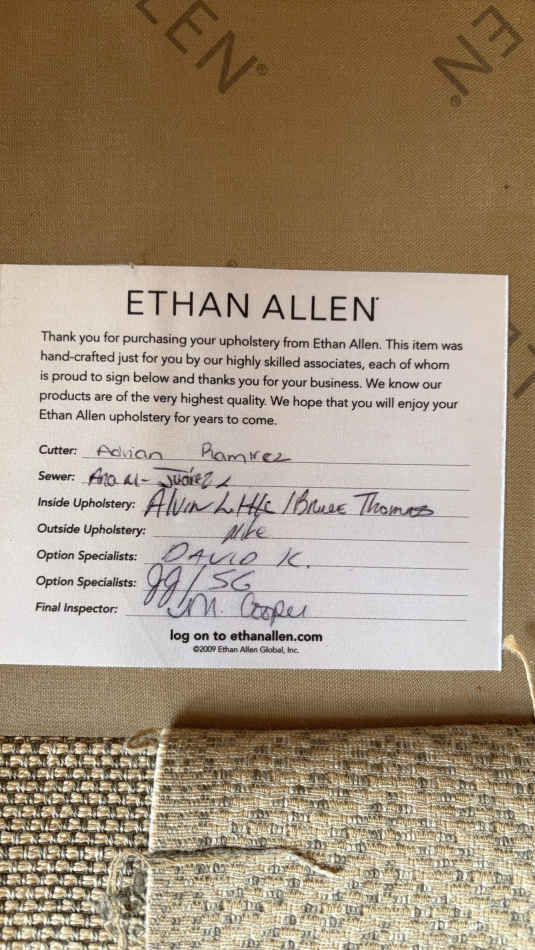 LEN®
EN
ETHAN ALLEN®
Thank you for purchasing your upholstery from Ethan Allen. This item was
hand-crafted just for you by our highly skilled associates, each of whom
is proud to sign below and thanks you for your business. We know our
products are of the very highest quality. We hope that you will enjoy your
Ethan Allen upholstery for years to come.
Cutter: Adrian Ramirez
Sewer: Ana M- Juárez
Inside Upholstery: Alvin Little / Bruce Thomas
Outside Upholstery: Mike
Option Specialists: DAVID K.
Option Specialists: JJ / SG
Final Inspector: J.M. Cooper
log on to ethanallen.com
©2009 Ethan Allen Global, Inc.